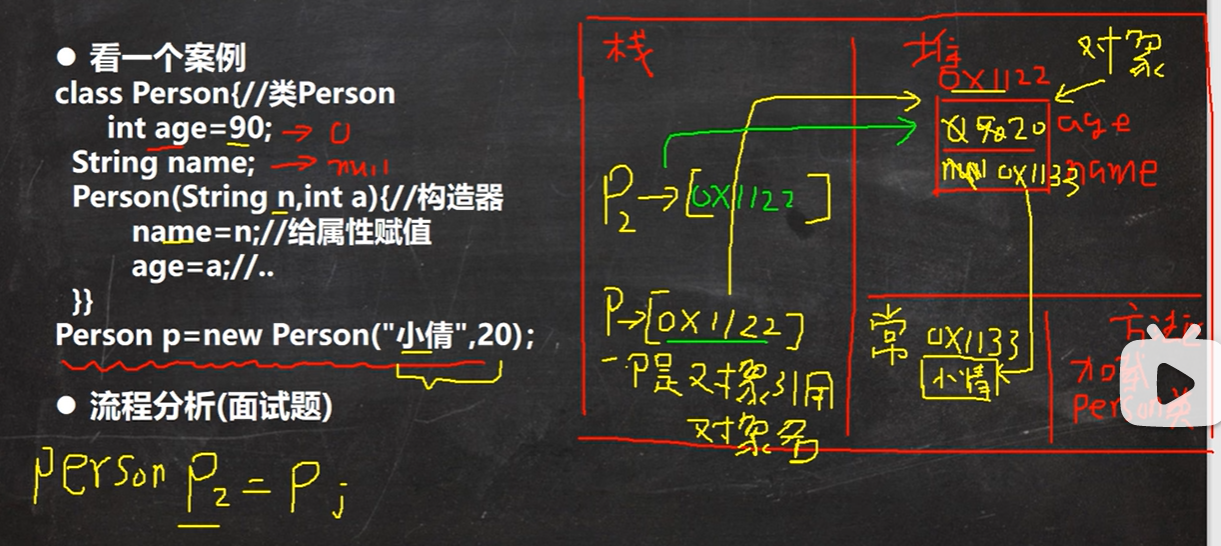 ● 看一个案例
class Person{//类Person
int age=90; → 0
String name; → null
Person(String n,int a){//构造器
name=n;//给属性赋值
age=a;//..
}}
Person p=new Person("小倩",20);
● 流程分析(面试题)
person P2 = P;
栈
堆
对象
0X1122
0 90 20 age
null 0x1133 name
P2→[0X1122]
P→[0X1122]
P是对象引用
对象名
常
0X1133
小倩
方法区
加载
Person类